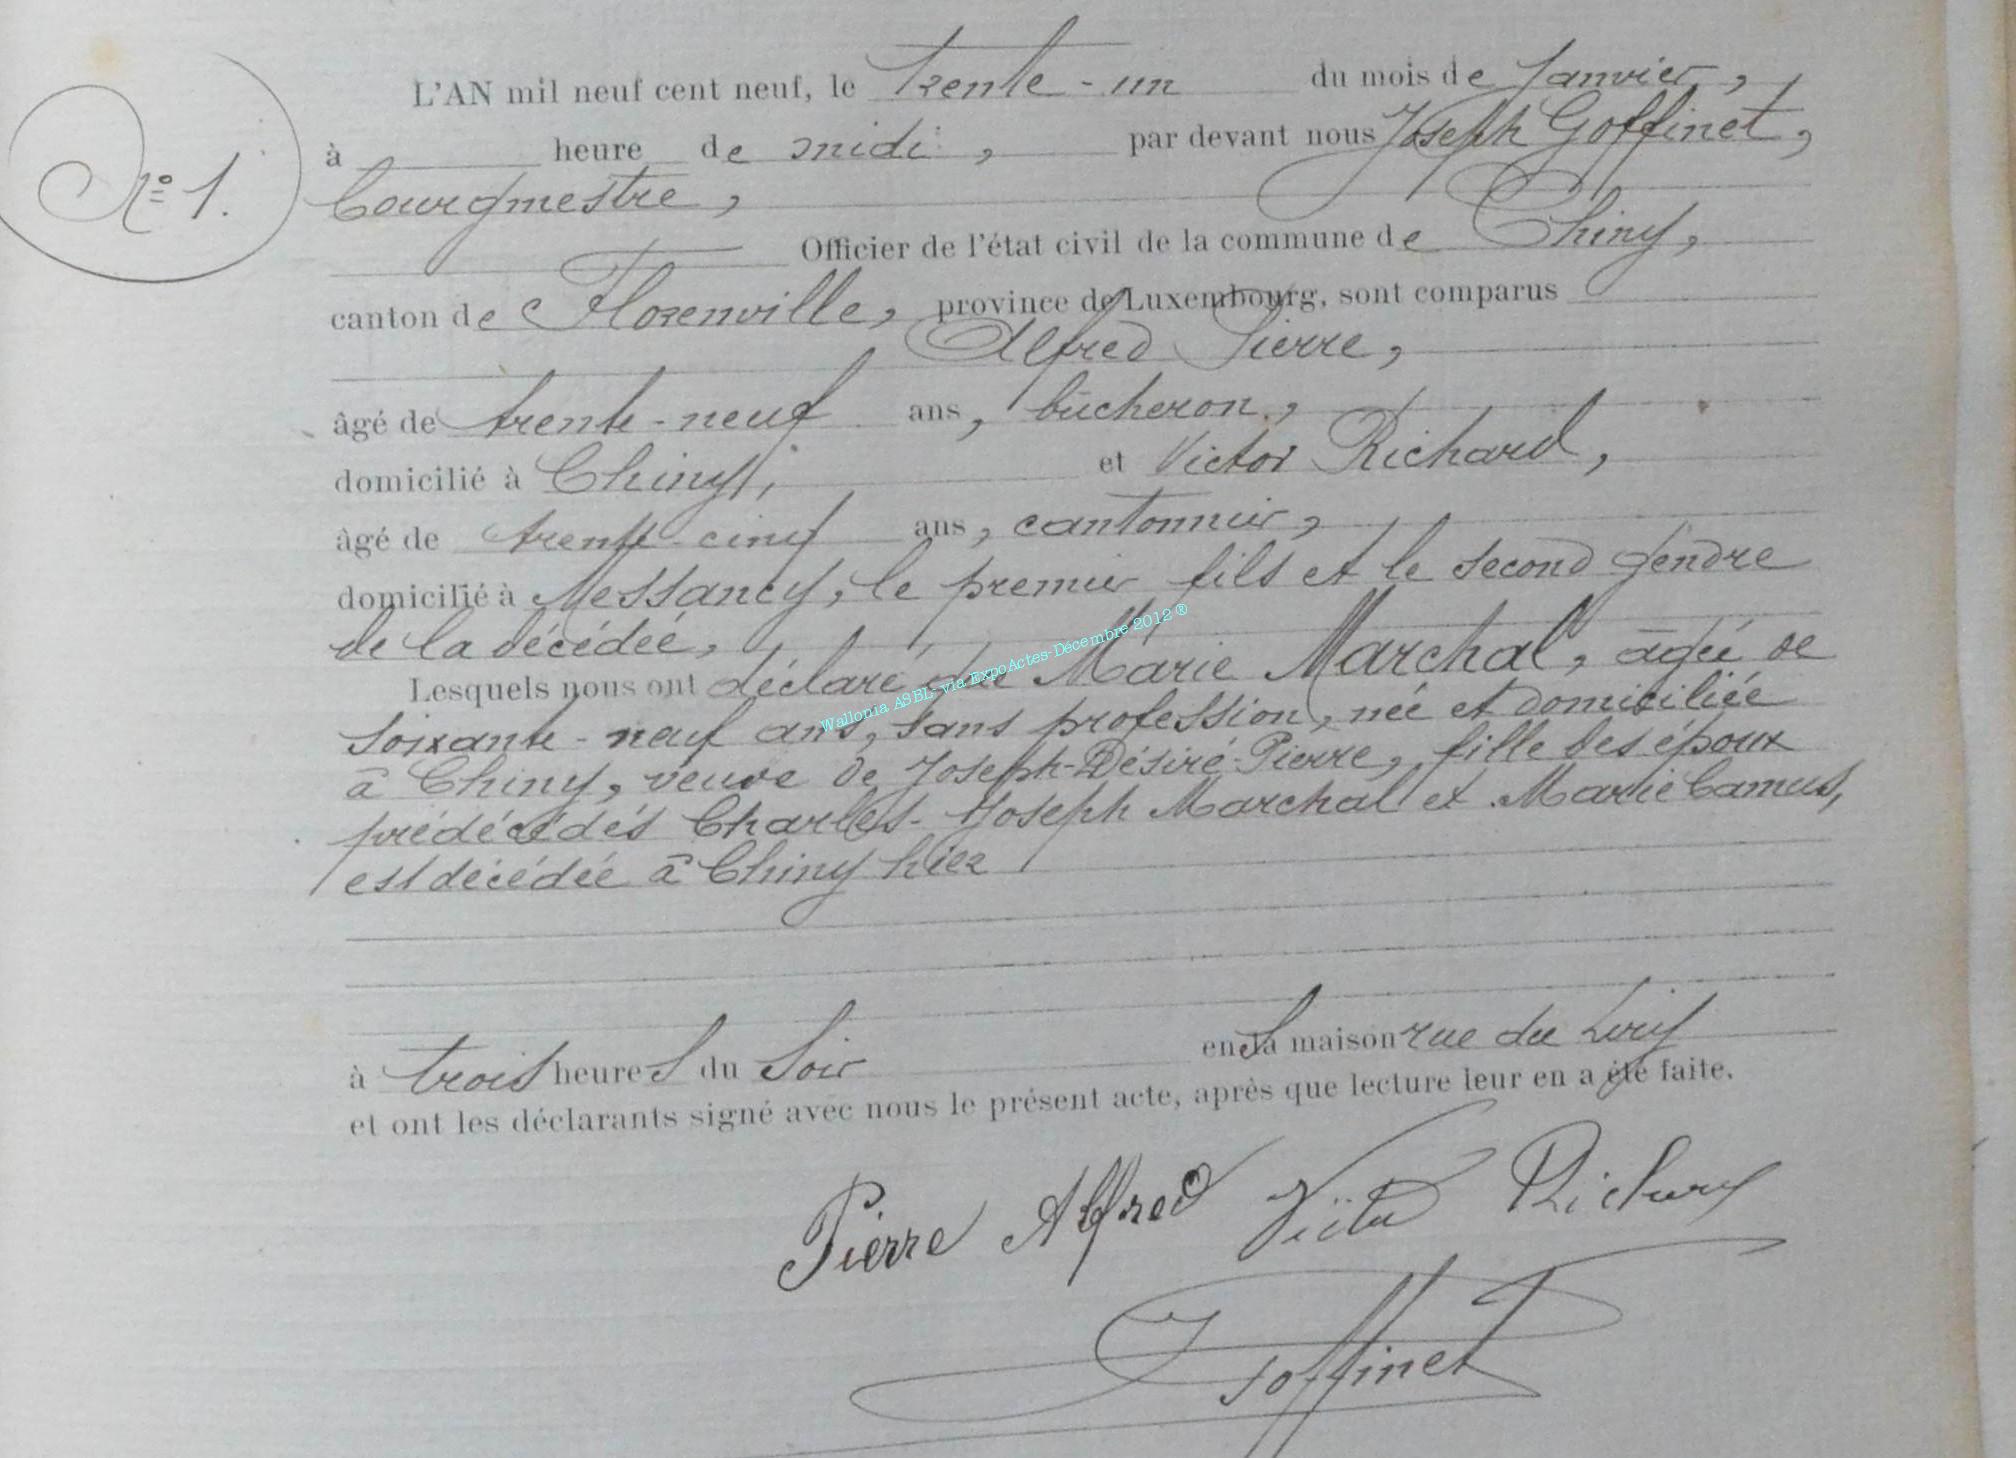 N° 1.
L'AN mil neuf cent neuf, le trente-un du mois de Janvier,
à heure de midi, par devant nous Joseph Goffinet,
bourgmestre,
Officier de l'état civil de la commune de Chiny,
canton de Florenville, province de Luxembourg, sont comparus
Alfred Pierre,
âgé de trente-neuf ans, bûcheron,
domicilié à Chiny, et Victor Richard,
âgé de trente-cinq ans, cantonnier,
domicilié à Messancy, le premier fils et le second gendre
de la décédée,
Lesquels nous ont déclaré que Marie Marchal, âgée de
soixante-neuf ans, sans profession, née et domiciliée
à Chiny, veuve de Joseph-Désiré Pierre, fille des époux
prédécédés Charles-Joseph Marchal et Marie Camus,
est décédée à Chiny hier
à trois heures du soir en sa maison rue du
et ont les déclarants signé avec nous le présent acte, après que lecture leur en a été faite.
Pierre Alfred Victor Richard
J Goffinet
Wallonia ASBL- via ExpoActes-Décembre 2012 ®